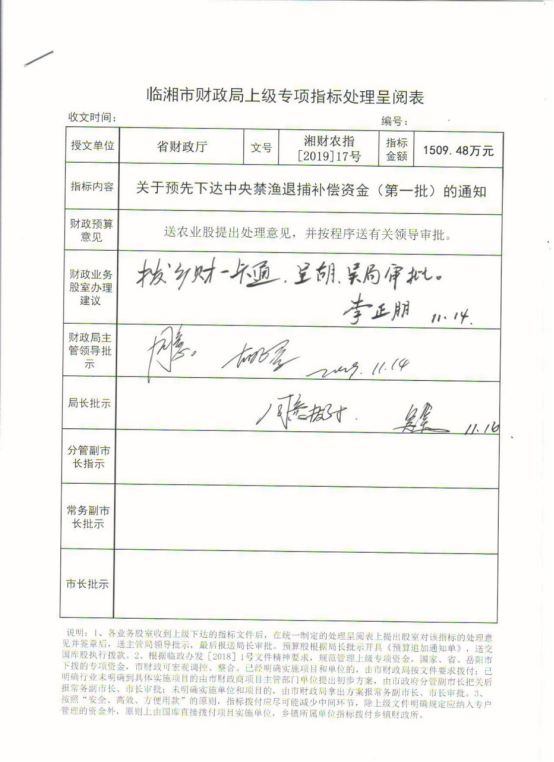 临湘市财政局上级专项指标处理呈阅表
收文时间： 编号：
授文单位 省财政厅 文号 湘财农指[2019]17号 指标金额 1509.48万元
指标内容 关于预先下达中央禁渔退捕补偿资金（第一批）的通知
财政预算意见 送农业股提出处理意见，并按程序送有关领导审批。
财政业务股室办理建议 拨乡财一卡通，呈胡、吴局审批。
李正朋 11.14.
财政局主管领导批示 同意。 2019.11.14
局长批示 同意拨付. 11.16
分管副市长指示
常务副市长批示
市长批示
说明：1、各业务股室收到上级下达的指标文件后，在统一制定的处理呈阅表上提出股室对该指标的处理意
见并签章后，送主管局领导批示，最后报送局长审批。预算股根据局长批示开具《预算追加通知单》，送交
国库股执行拨款。2、根据临政办发［2018］1号文件精神要求，规范管理上级专项资金，国家、省、岳阳市
下拨的专项资金，市财政可宏观调控、整合。已经明确实施项目和单位的，由市财政局按文件要求拨付；已
明确行业未明确到具体实施项目的由市财政商项目主管部门单位提出初步方案，由市政府分管副市长把关后
报常务副市长、市长审批；未明确实施单位和项目的，由市财政局拿出方案报常务副市长、市长审批。3、
按照“安全、高效、方便用款”的原则，指标拨付应尽可能减少中间环节，除上级文件明确规定应纳入专户
管理的资金外，原则上由国库直接拨付项目实施单位，乡镇所属单位指标拨付乡镇财政所。